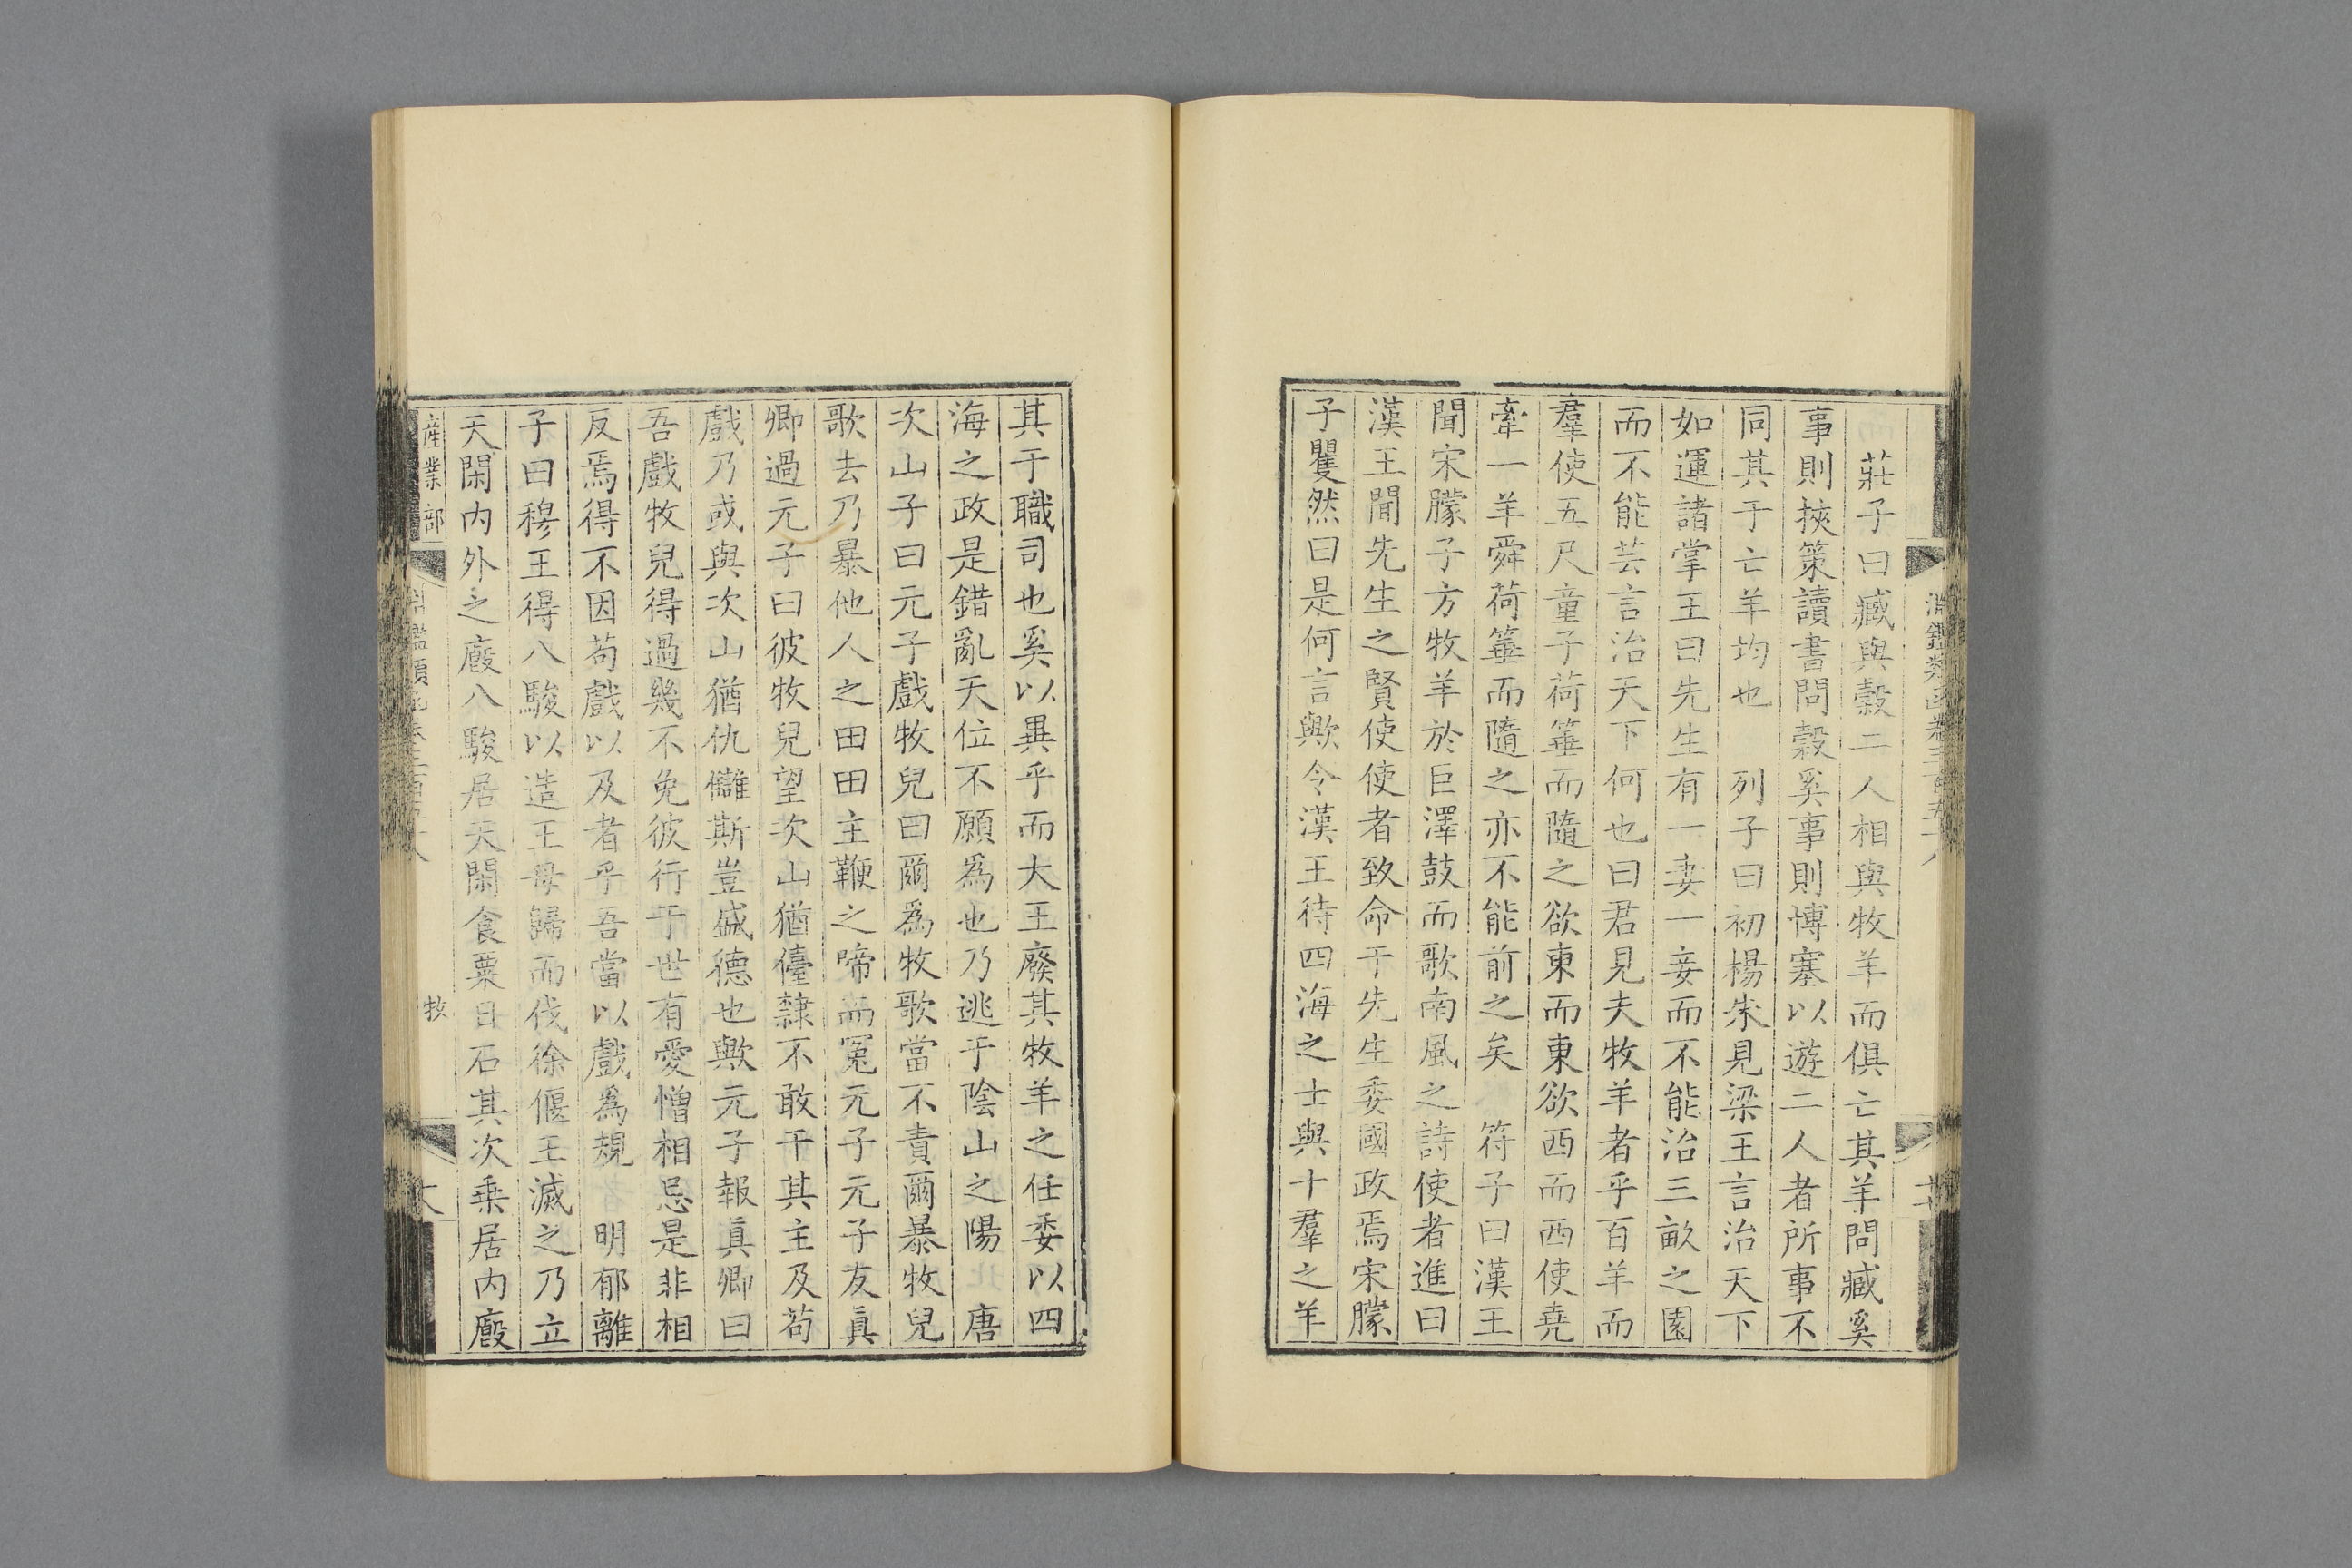 淵鑑類函卷三百五十八
莊子曰臧與穀二人相與牧羊而俱亡其羊問臧奚
事則挾策讀書問穀奚事則博塞以遊二人者所事不
同其于亡羊均也 列子曰初楊朱見梁王言治天下
如運諸掌王曰先生有一妻一妾而不能治三畝之園
而不能芸言治天下何也曰君見夫牧羊者乎百羊而
羣使五尺童子荷箠而隨之欲東而東欲西而西使堯
牽一羊舜荷箠而隨之亦不能前之矣 符子曰漢王
聞宋朦子方牧羊於巨澤鼓而歌南風之詩使者進曰
漢王聞先生之賢使使者致命于先生委國政焉宋朦
子瞿然曰是何言歟令漢王待四海之士與十羣之羊
其于職司也奚以異乎而大王廢其牧羊之任委以四
海之政是錯亂天位不願爲也乃逃于陰山之陽 唐
次山子曰元子戲牧兒曰爾爲牧歌當不責爾暴牧兒
歌去乃暴他人之田田主鞭之啼而冤元子元子友真
卿過元子曰彼牧兒望次山猶儓隸不敢干其主及苟
戲乃或與次山猶仇讎斯豈盛德也歟元子報真卿曰
吾戲牧兒得過幾不免彼行于世有愛憎相忌是非相
反焉得不因苟戲以及者乎吾當以戲爲規 明郁離
子曰穆王得八駿以造王母歸而伐徐偃王滅之乃立
天閑內外之廄八駿居天閑食粟日石其次乘居內廄
産業部 牧